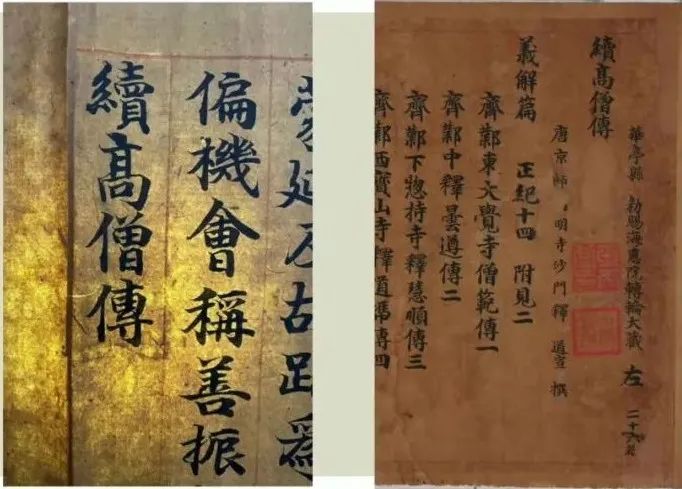 續高僧傳
偏機會稱善振
華亭縣 勑賜海惠院轉輪大藏 左
續高僧傳
唐京師 明寺沙門釋 道宣 撰
義解篇 正紀十四 附見二
齊鄴東大覺寺僧範傳一
齊鄴中釋曇遵傳二
齊鄴下揔持寺釋慧順傳三
齊鄴西寶山寺釋道憑傳四